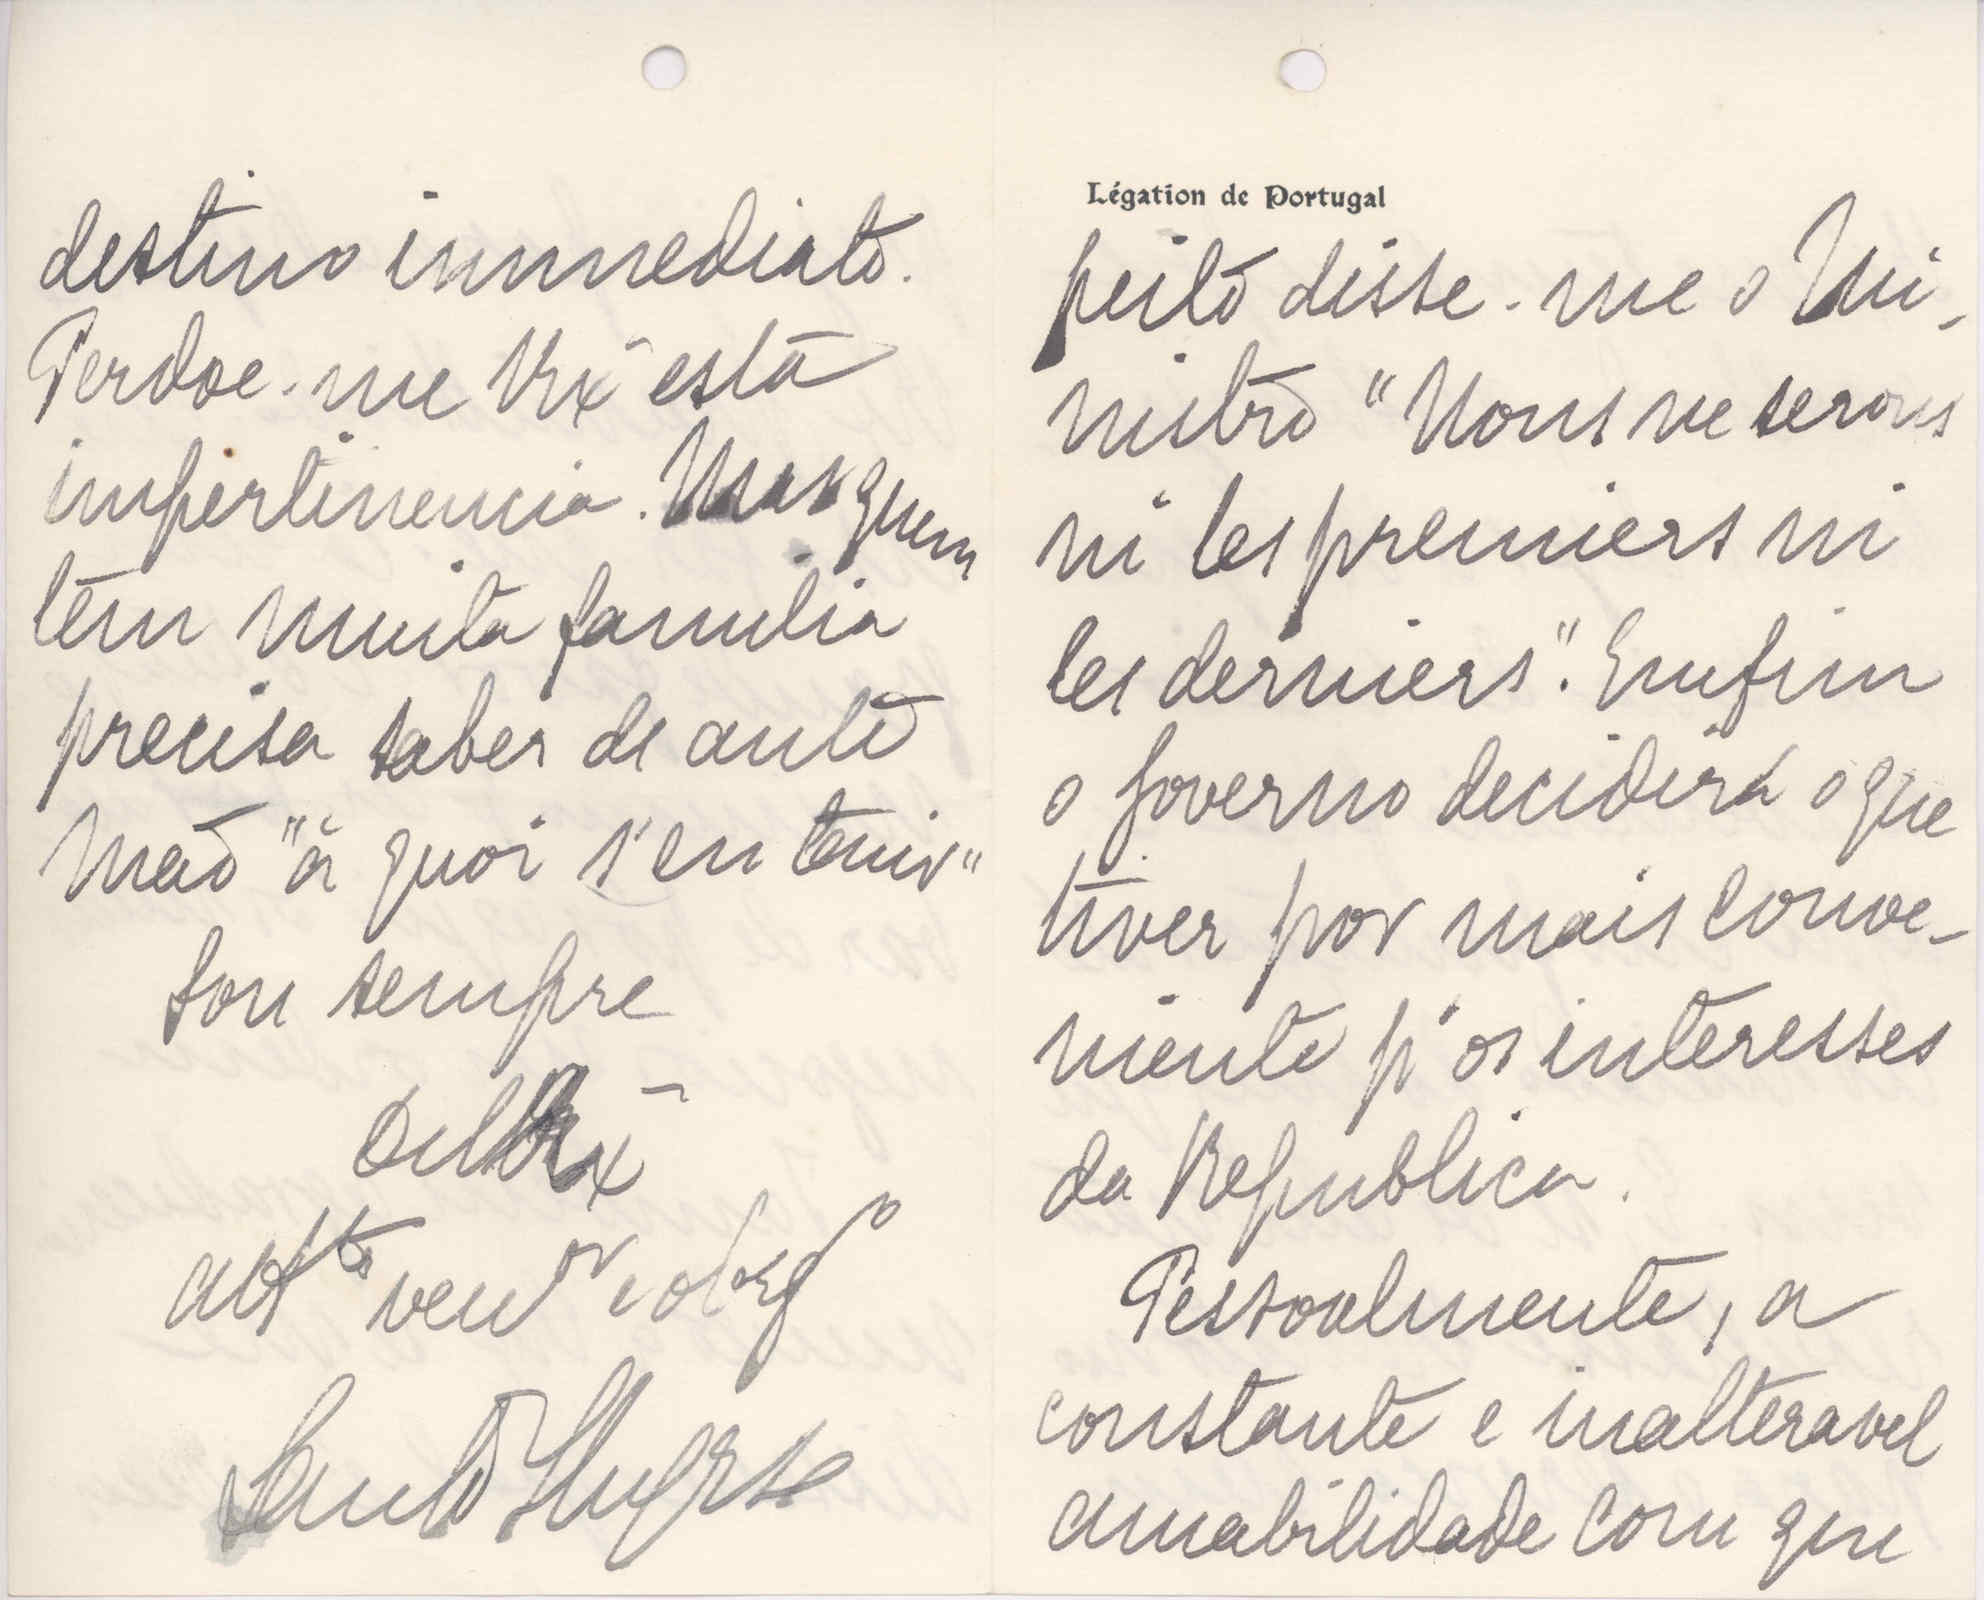 destino immediato.
Perdoe-me VEx.ª esta
impertinencia. Mas quem
tem muita familia
precisa saber de ante
mão "à quoi s'en tenir"
Sou sempre
De VEx.ª
att.to ven.or e obrg.o
Légation de Portugal
peito disse-me o Mi-
nistro "Nous ne serons
ni les premiers ni
les derniers". Emfim
o governo decidirá o que
tiver por mais conve-
niente p' os interesses
da Republica.
Pessoalmente, a
constante e inalteravel
amabilidade com que